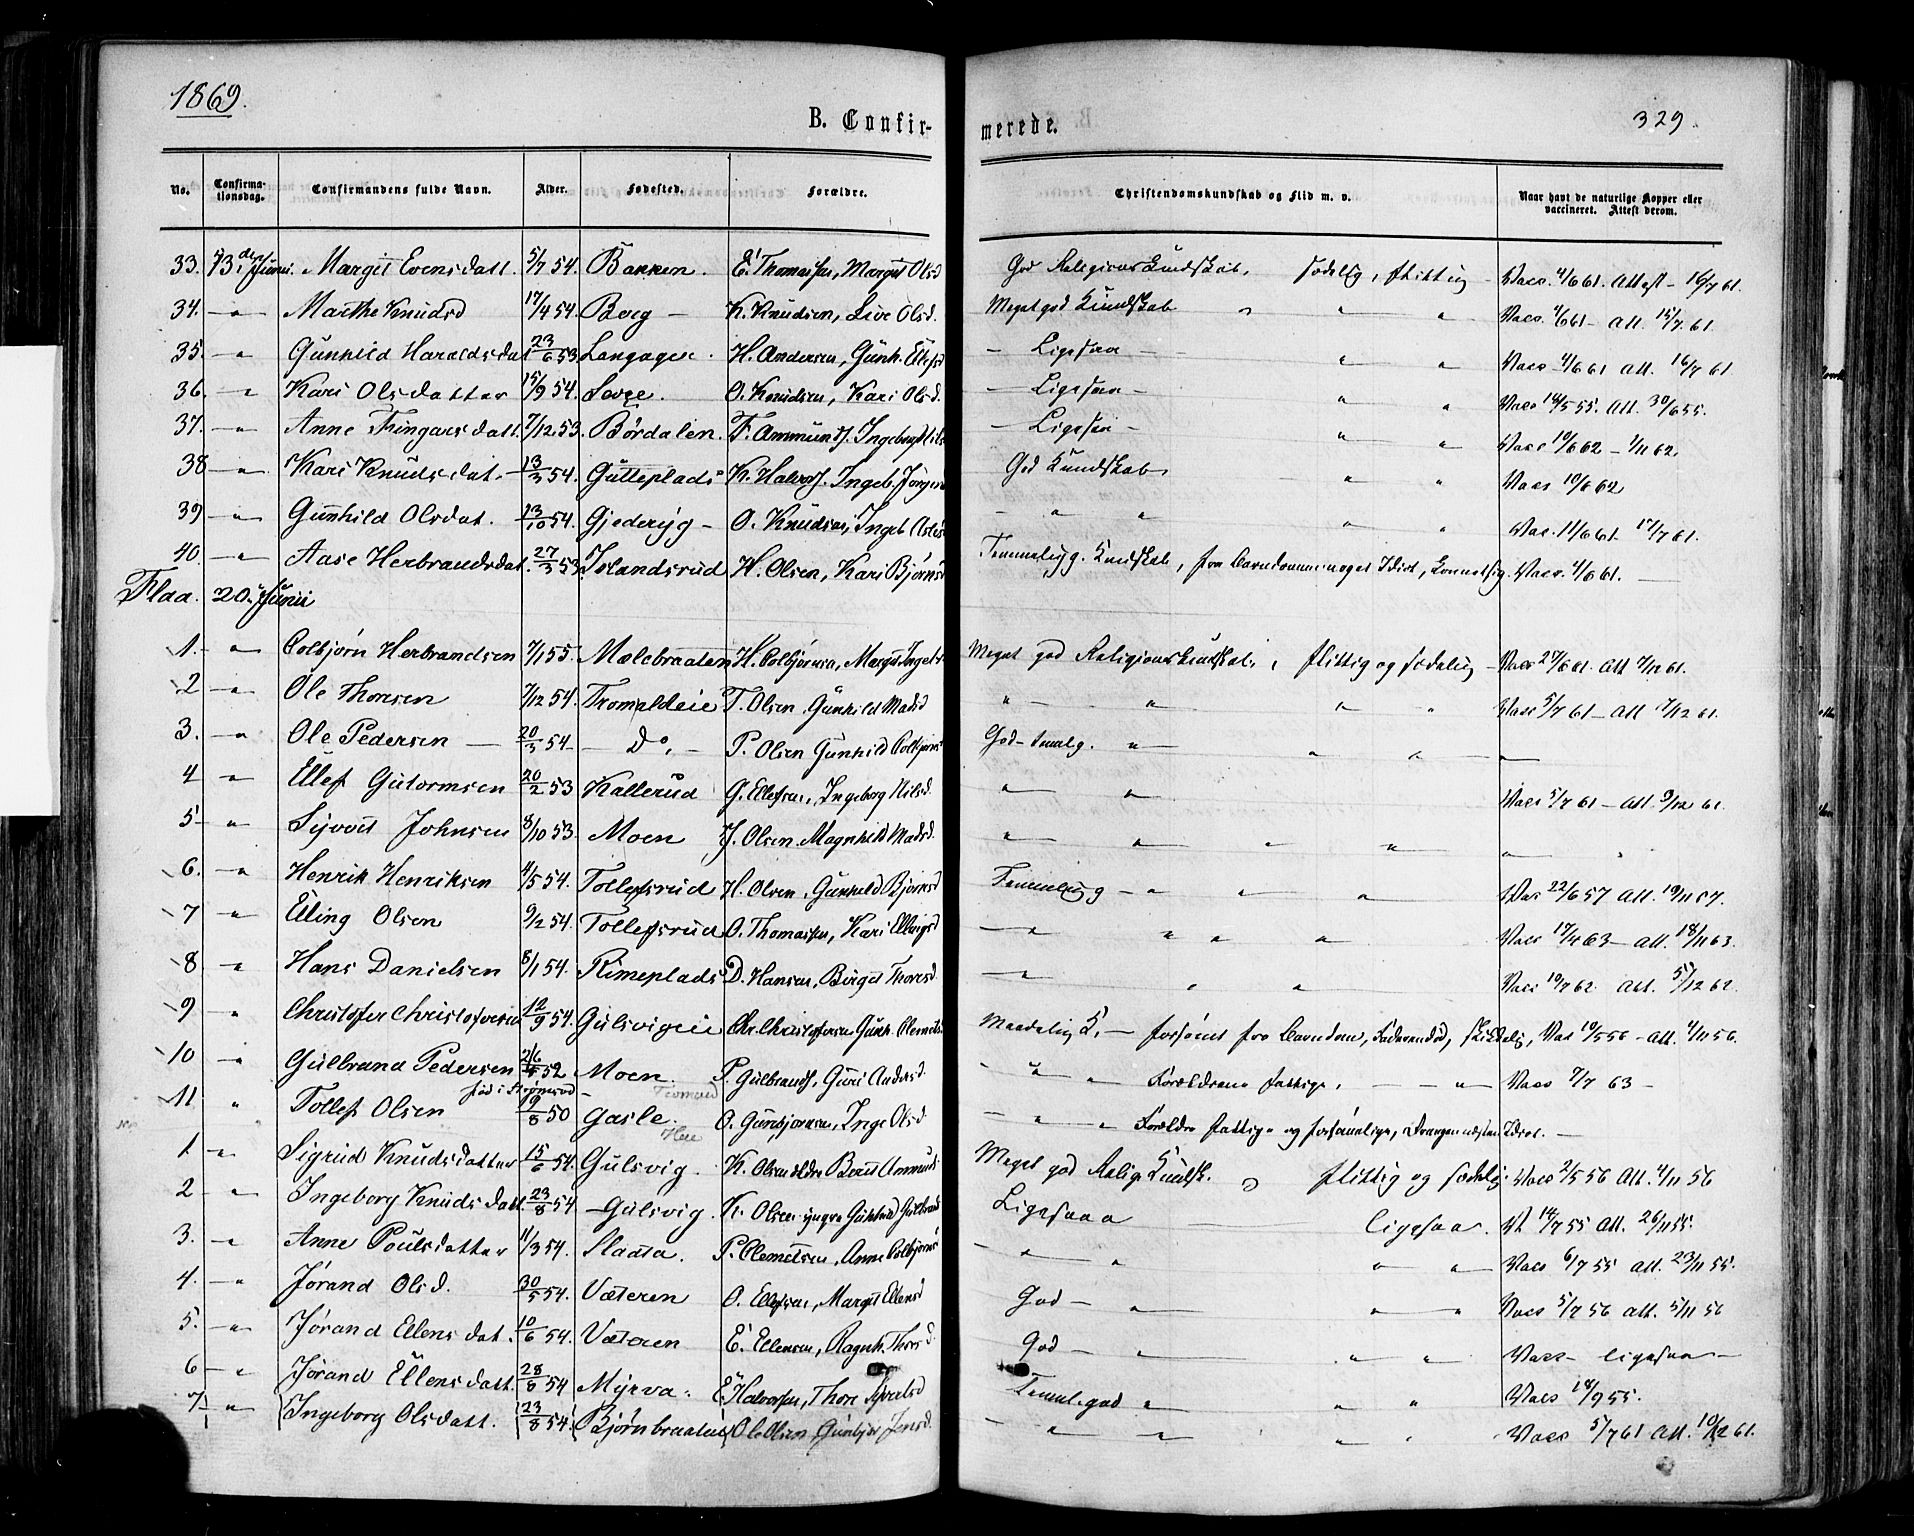 1869.
B. Confir-
merede.
329
No. Confirma-tionsdag. Confirmandens fulde Navn. Alder. Fødested. Forældre. Christendomskundskab og Flid m. v. Naar havt de naturlige Kopper eller vaccineret. Attest derom.
33. 13de Junii. Margit Evensdatt. 5/7 54. Bakken. E. Thomasen, Margit Olsd God Religions Kundskab, sædelig, flittig - Vacc. 4/6 61. Attest - 16/7 61.
34. - " - Marthe Knudsd 17/4 54. Berg - K. Knudsen, Live Olsd. Meget god Kundskab " " " Vacc. 4/6 61 - Att. 15/7 61.
35. - " Gunhild Haraldsdat 23/6 53 Langager. H. Andersen, Gunh. Ellefsd - Ligesaa - " " Vacc - 4/6 61 Att. 16/7 61
36. - " Kari Olsdatter 15/9 54. O. Knudsen, Kari Olsd. - Ligesaa - " " Vacc 18/5 55. Att. 30/6 55.
37. - " Anne Thingarsdatt 7/12 53. Børdalen. T. Ammunds. Ingeborg Nils - Ligesaa - " " Vacc 10/6 62 - 1/11 62.
38 - " Kari Knudsdat. 13/3 54. Gutteplads K. Halvors. Ingeb. Jørgen God Kundskab, " " Vacc 10/6 62
39 - " - Gunhild Olsdat. 13/10 54. Gjederyg - O. Knudsen, Ingeb. - " " " " Vac. 11/6 61. 17/7 61.
40. - " - Aase Herbrandsdat. 27/3 53. Islandsrud H. Olsen, Kari Bjørns Temmelig g. Kundskab, fra Barndommen noget Idiot, Vacc. 4/6 61. -
Flaa. 20. Junii
1. - " Colbjørn Herbrandsen 7/1 55. Mælebraaten H. Colbjørnsen, Margit Ingebr Meget god Religionskundskab, flittig og sædelig - Vacc 27/6 61. Att 7/12 61.
2 - " Ole Thoresen 7/12 54. Tromaldeie T. Olsen, Gunhild Madsd " " " " Vacc 5/7 61 - Att 7/12 61.
3. - " Ole Pedersen - 20/3 54. - Do, - P. Olsen Gunhild Colbjørns God - temelg. " " " "
4 " Ellef Gutormsen 20/2 53 Kallerud G. Ellefsen, Ingeborg Nilsd. " " Vacc 5/7 61 - Att. 9/12 61.
5 - " Syvert Johnsen 8/10 53. Moen J. Olsen. Magnhild Madsd. " " " " "
6. - " Henrik Henriksen 4/5 54. Tollefsrud H. Olsen, Gunhild Bjørnsd Temmelig g - " " " Vac 22/6 57 Att. 19/11 57.
7 " Elling Olsen 9/2 54. Tollefsrud O. Thomasen, Kari Ellingsd - " " " " Vacc 17/4 63 - Att. 18/11 63.
8 " Hans Danielsen 8/1 54. Rimeplads D. Hansen, Birgit Thoresd - " " " Vacc 10/7 62 Att. 5/12 62.
9 " Christofer Christofersen 12/9 54. Gulsvigeie Chr. Christofersen Gunh. Clemets Maadelig K, - forsømt fra Barndom, sædelig, Vac 10/5 56 - Att. 4/11 56.
10 " Gulbrand Pedersen 26/5 52 Moen. P. Gulbrands, Guri Andersd. - " " Forældrene fattige, - " Vacc 7/7 63 -
11 " Tollef Olsen 19/8 50 Gasle. O. Gunbjørnsen, Inge Olsd. - " " Forældre fattige og forsømmelige, Drengen næsten Idiot. -
1 - " Sigrid Knudsdatter 15/6 54. Gulsvig. K. Olsen ældre Berit Ammunds Meget god Relig. Kundsk. " flittig og sædelig Vacc 2/5 56 Att. 4/11 56
2 - " Ingeborg Knudsdatt. 23/8 54. - Gulsvig. K. Olsen yngre Gunhild Gulbrands Ligesaaa ligesaa. 14/7 55 Att. 26/11 55.
3. - " Anne Poulsdatter 11/3 54. Slaatta. P. Clemetsen, Anne Colbjørns - " " " " Vacc 6/7 55 Att. 23/11 55.
4. - " Jørand Olsd. 30/5 54. Væteren O. Ellefsen, Margit Ellensd God - " " " Vacc 5/7 56 Att. 5/11 56
5. - " Jørand Ellensdat. 10/6 54. Væteren E. Ellensen, Ragnh. Thorsd. God - " " " Vacc - ligesaa -
6 - " Jørand Ellensdatt. 28/8 54 Myrva. E. Halvorsen, Thore Temmel. god " " " Vacc 18/9 55.
7 - " Ingeborg Olsdatt. 23/8 54. Bjørnbraaten Ole Olsen Gunbjør Jensd. - " " " " Vacc 5/7 61 Att. 10/12 61.